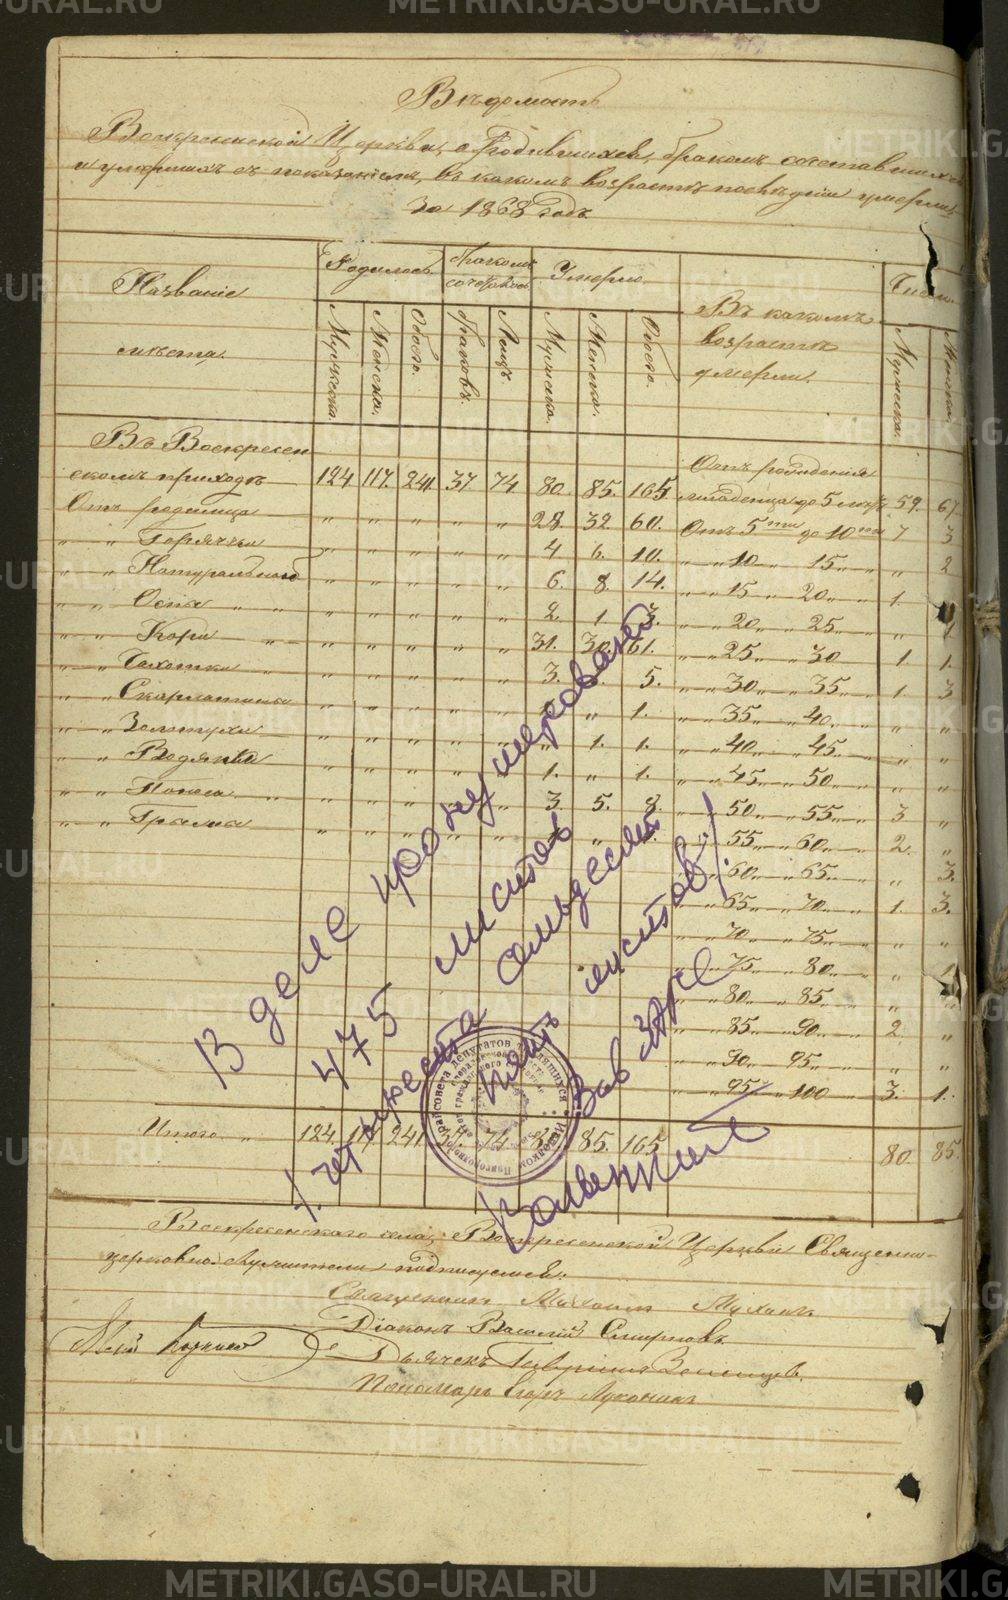 METRIKI.GASO-URAL.RU
Вѣдомость
Воскресенской Церкви, о родившихся, бракомъ сочетавшихся
и умершихъ съ показаніемъ, въ какомъ возрастѣ послѣдніе умерли
За 1868 годъ
Названіе мѣста.
Родилось
Мужеска. Женска. Обоего.
бракомъ сочеталось
браковъ. Лицъ
Умерло
Мужеска. Женска. Обоего.
Въ какомъ возрастѣ умерли.
Число
Мужеска. Женска.
Въ Воскресен
скомъ приходѣ 124 117 241 37 74 80. 85. 165
Отъ рожденія
младенца до 5 лѣтъ 59. 67.
Отъ родимца " " " " " 28. 32. 60. Отъ 5ти до 10ти 7 3
" " Горячки " " " " " 4 6. 10. " " 10 " 15 " " 2
" " Натуральной " " " " " 6. 8. 14. " " 15 " 20 " 1.
" " Оспы " " " " " 2. 1. 3. " " 20 " 25 " " 1.
" " Кори " " " " " 31. 30. 61. " " 25 " 30 1. 1.
" " Чахотки " " " " " 3. 5. " " 30 " 35 " 1. 3
" " Скарлатина " " " " " " 1. " " 35 " 40 " " "
" " Золтухи " " " " " 1. 1. " " 40 " 45. " "
" " Водянка " " " " " 1. " 1. " " 45 " 50 " " "
" " Поноса " " " " " 3. 5. 8. " " 50 " 55 " 3 "
" " Грыжи " " " " " " " 55 " 60 " 2. "
" 60 " 65 " " 3.
" 65 " 70 " 1. 3.
" 70 " 75 " " "
" 75 " 80 " " 1
" 80 " 85 " " "
" 85 " 90 " 2. "
" 90 " 95 " " "
" 95 " 100 " 3. 1.
Итого " 124. 117 241 37 74 80 85. 165 80. 85.
В деле пронумеровано
475 листов
/четыреста семьдесят
пять листов/.
Зав ЗАГС
Воскресенскаго села, Воскресенской Церкви Священно-
церковно-служители подписуемся:
Священникъ Михаилъ
Діаконъ Василій Смирновъ
Дьячекъ Гавріилъ
Пономарь Егоръ Луканинъ